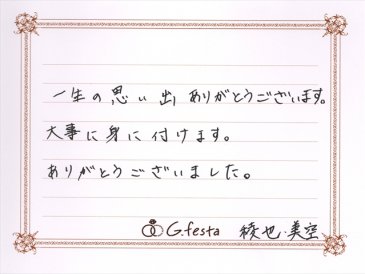 一生の思い出ありがとうございます。
大事に身に付けます。
ありがとうございました。
G.festa 綾也・美空